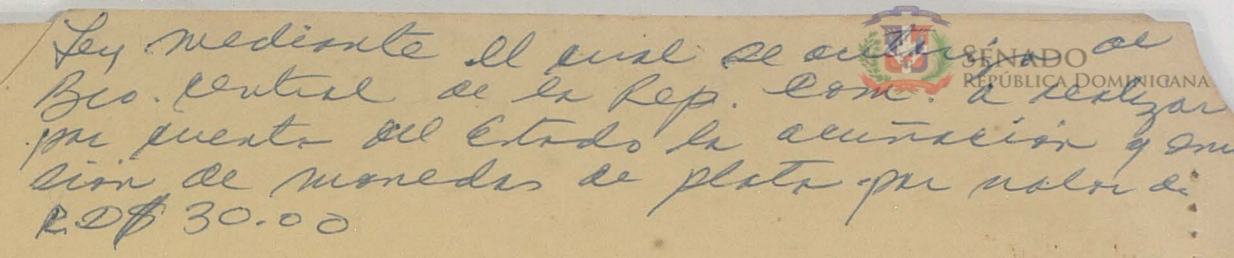 Ley mediante el cual se autoriza al
Bco. Central de la Rep. Dom. a realizar
por cuenta del Estado la acuñación y emi
sión de monedas de plata por valor de
RD$ 30.00
SENADO
REPÚBLICA DOMINICANA